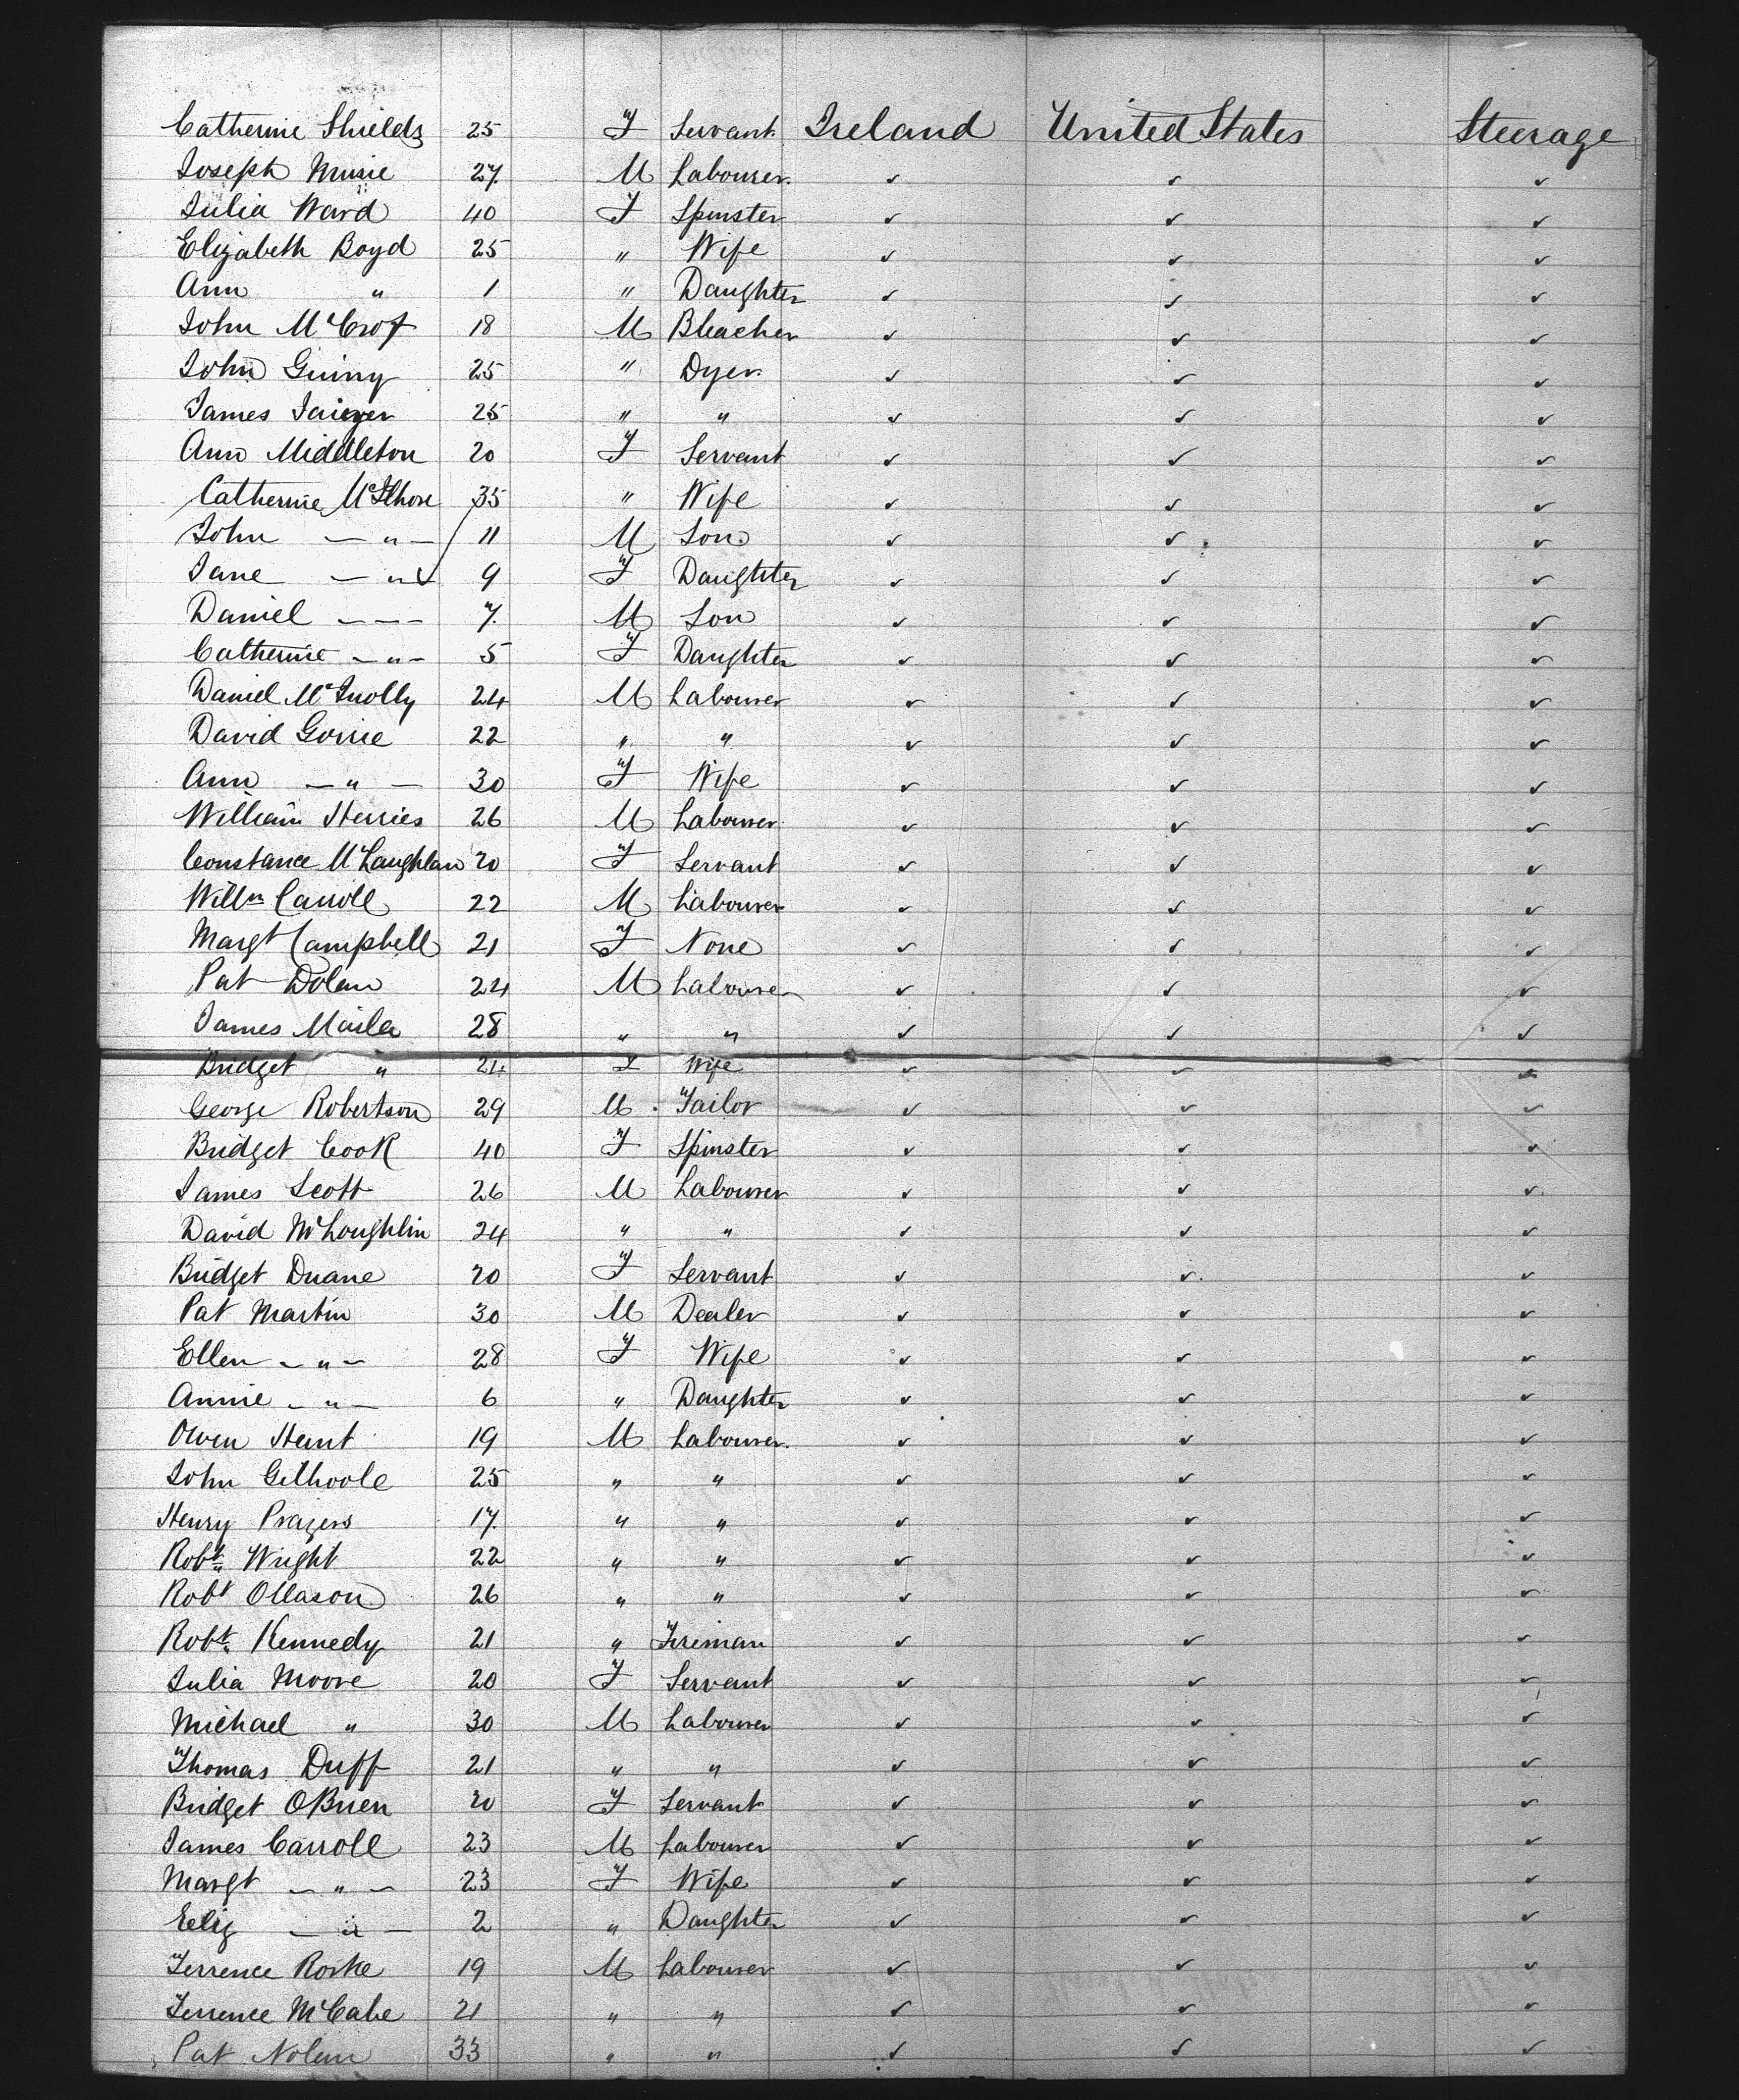 Catherine Shields 25 F Servant Ireland United States Steerage
Joseph Musie 27 M Labourer ✓ ✓ ✓
Julia Ward 40 F Spinster ✓ ✓ ✓
Elizabeth Boyd 25 " Wife ✓ ✓ ✓
Ann " 1 " Daughter ✓ ✓ ✓
John McCroy 18 M Bleacher ✓ ✓ ✓
John Guiny 25 " Dyer ✓ ✓ ✓
James 25 " " ✓ ✓ ✓
Ann Middleton 20 F Servant ✓ ✓ ✓
Catherine McIlhose 35 " Wife ✓ ✓ ✓
John — " — 11 M Son ✓ ✓ ✓
Jane — " 9 F Daughter ✓ ✓ ✓
Daniel — — — 7 M Son ✓ ✓ ✓
Catherine — " — 5 F Daughter ✓ ✓ ✓
Daniel McInolly 24 M Labourer ✓ ✓ ✓
David Gorrie 22 " " ✓ ✓ ✓
Ann — " — 30 F Wife ✓ ✓ ✓
William Herries 26 M Labourer ✓ ✓ ✓
Constance McLaughlan 20 F Servant ✓ ✓ ✓
Willm Carroll 22 M Labourer ✓ ✓ ✓
Margt Campbell 21 F None ✓ ✓ ✓
Pat Dolan 24 M Labourer ✓ ✓ ✓
James Maila 28 " " ✓ ✓ ✓
Bridget " 24 F Wife ✓ ✓ ✓
George Robertson 29 M Tailor ✓ ✓ ✓
Bridget Cook 40 F Spinster ✓ ✓ ✓
James Scott 26 M Labourer ✓ ✓ ✓
David McLoughlin 24 " " ✓ ✓ ✓
Bridget Duane 20 F Servant ✓ ✓ ✓
Pat Martin 30 M Dealer ✓ ✓ ✓
Ellen — " — 28 F Wife ✓ ✓ ✓
Annie — " — 6 " Daughter ✓ ✓ ✓
Owen Hunt 19 M Labourer ✓ ✓ ✓
John Gilhoole 25 " " ✓ ✓ ✓
Henry Pragers 17 " " ✓ ✓ ✓
Robt Wright 22 " " ✓ ✓ ✓
Robt Ollason 26 " " ✓ ✓ ✓
Robt Kennedy 21 " Fireman ✓ ✓ ✓
Julia Moore 20 F Servant ✓ ✓ ✓
Michael " 30 M Labourer ✓ ✓ ✓
Thomas Duff 21 " " ✓ ✓ ✓
Bridget OBrien 20 F Servant ✓ ✓ ✓
James Carroll 23 M Labourer ✓ ✓ ✓
Margt — " — 23 F Wife ✓ ✓ ✓
Eliz — " — 2 " Daughter ✓ ✓ ✓
Terrence Rorke 19 M Labourer ✓ ✓ ✓
Terrence McCabe 21 " " ✓ ✓ ✓
Pat Nolan 33 " " ✓ ✓ ✓